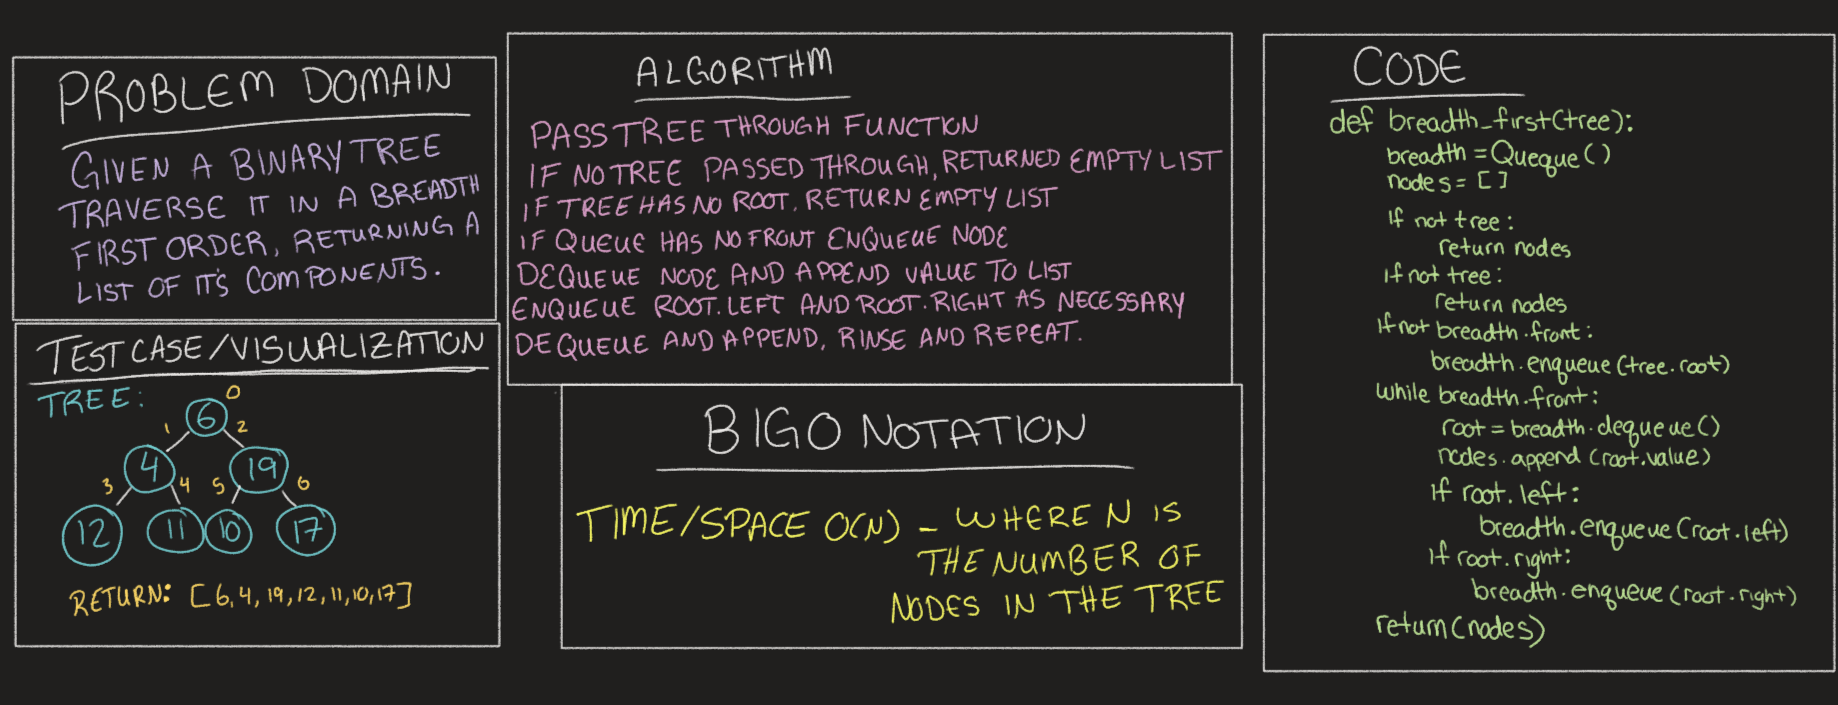 PROBLEM DOMAIN
GIVEN A BINARY TREE
TRAVERSE IT IN A BREADTH
FIRST ORDER, RETURNING A
LIST OF IT'S COMPONENTS.
TEST CASE/VISUALIZATION
TREE:
0
6
1 2
4 19
3 4 5 6
12 11 10 17
RETURN: [6,4,19,12,11,10,17]
ALGORITHM
PASS TREE THROUGH FUNCTION
IF NO TREE PASSED THROUGH, RETURNED EMPTY LIST
IF TREE HAS NO ROOT. RETURN EMPTY LIST
IF QUEUE HAS NO FRONT ENQUEUE NODE
DEQUEUE NODE AND APPEND VALUE TO LIST
ENQUEUE ROOT.LEFT AND ROOT.RIGHT AS NECESSARY
DEQUEUE AND APPEND, RINSE AND REPEAT.
BIG O NOTATION
TIME/SPACE O(N) - WHERE N IS
THE NUMBER OF
NODES IN THE TREE
CODE
def breadth_first(tree):
breadth = Queque()
nodes = []
if not tree:
return nodes
if not tree:
return nodes
if not breadth.front:
breadth.enqueue(tree.root)
while breadth.front:
root = breadth.dequeue()
nodes.append(root.value)
if root.left:
breadth.enqueue(root.left)
if root.right:
breadth.enqueue(root.right)
return(nodes)